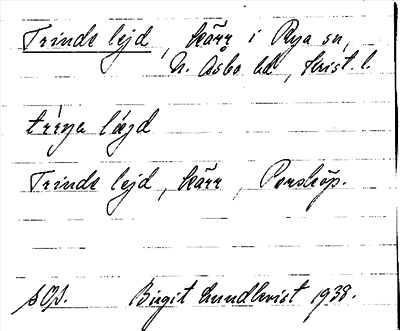 Trinde lejd, kärr i Rya sn,
N. Åsbo hd, Krist. l.
trına lǽjd
Trinde lejd, kärr, Perstorp.
SOI. Birgit Lundkvist 1938.